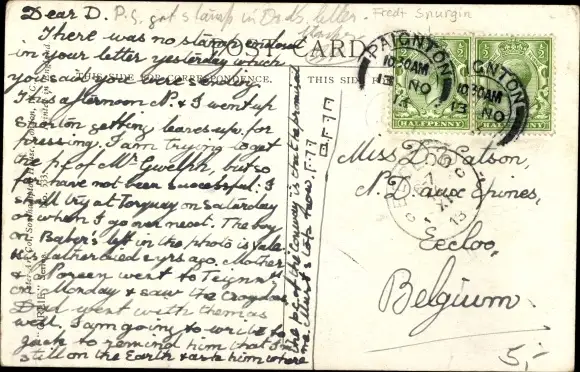 Dear D. P.S. got stamp in Dad's letter.
Fredk Spurgin
There was no stamp enclosed
in your letter yesterday which
you said you were sending.
CARD
THIS SIDE FOR CORRESPONDENCE.
THIS SIDE F
This afternoon N. & I went up
getting leaves up for
pressing. I am trying to get
the p.c. of Mr Gwelph, but so
far have not been successful. I
shall try at Torquay on Saturday
or when I go over next. The boy
on Baker's left in the photo is
His father died 2 yrs ago. Mother
& Doreen went to Teignmth
on Monday & saw the Croydons
Dad went with them as
well. I am going to write to
Jack to remind him that I'm
still on the Earth & ask him where
the p.c. of the Conway is that he promised
me. Must stop now.
PAIGNTON
10 30 AM
13 NO
13
HALFPENNY
GNTON
10 30 AM
13 NO
13
HALFPENNY
Miss D. Watson,
N. D. aux Epines,
Eecloo,
Belgium
5,-